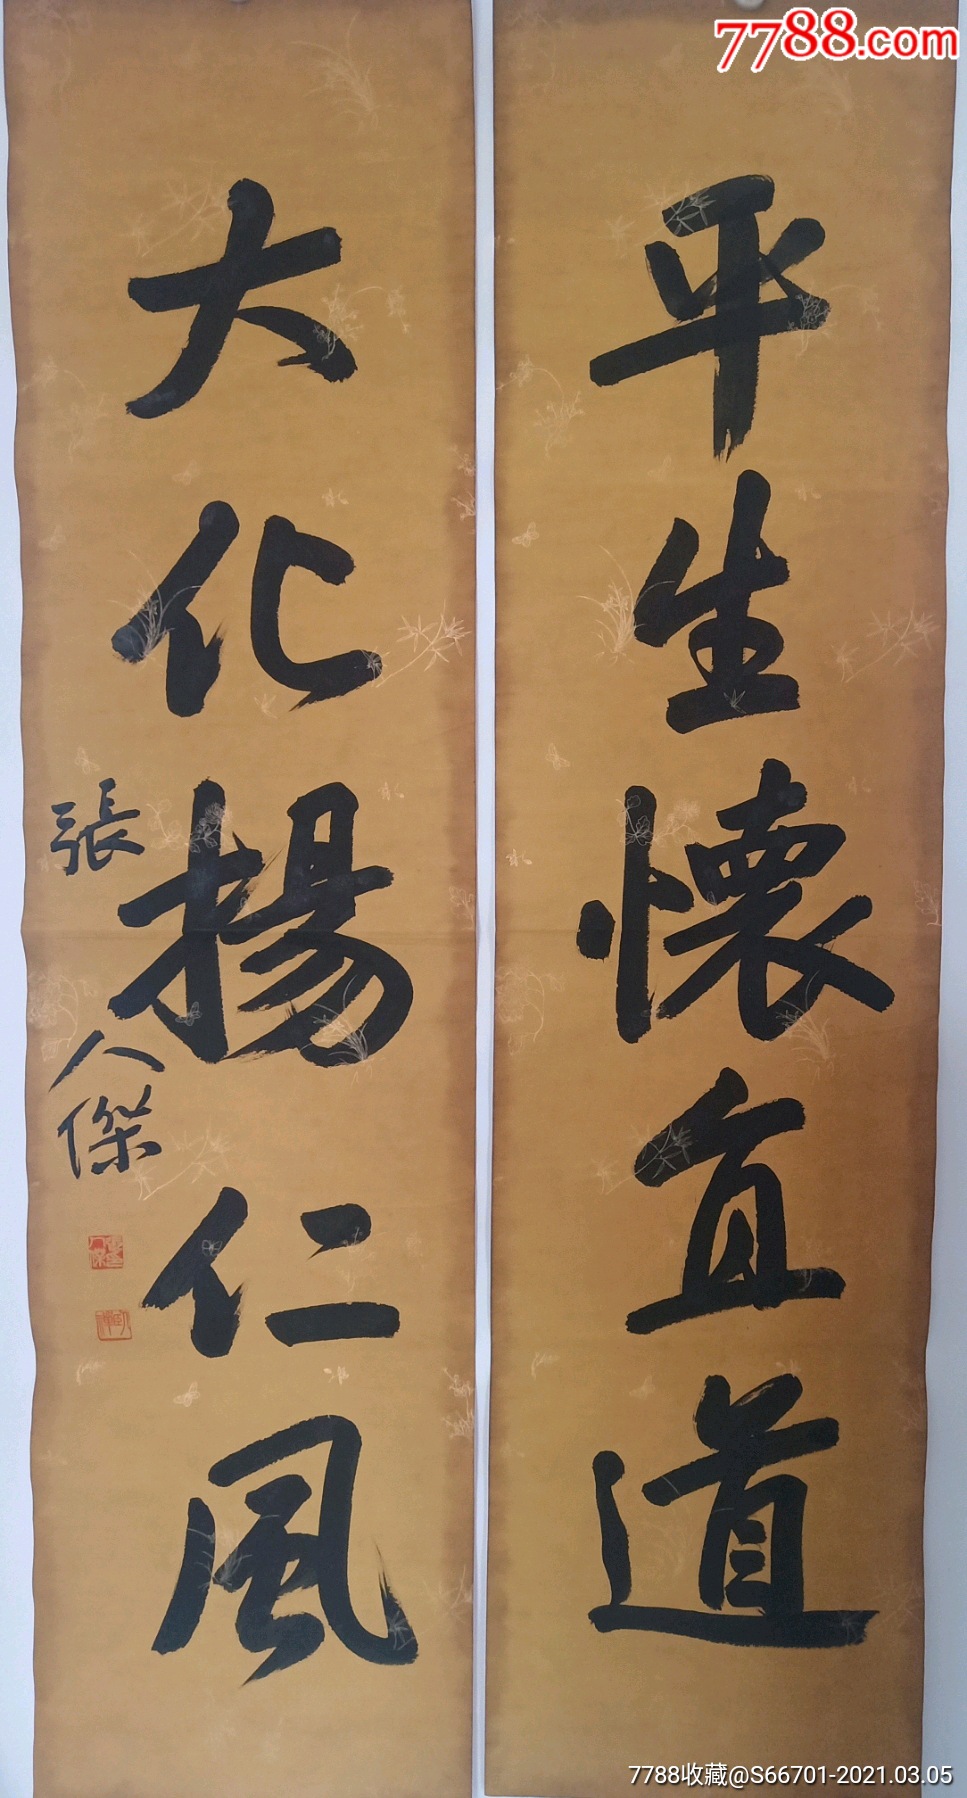 7788.com
平生懷直道
大化揚仁風
張人傑
7788收藏@S66701-2021.03.05